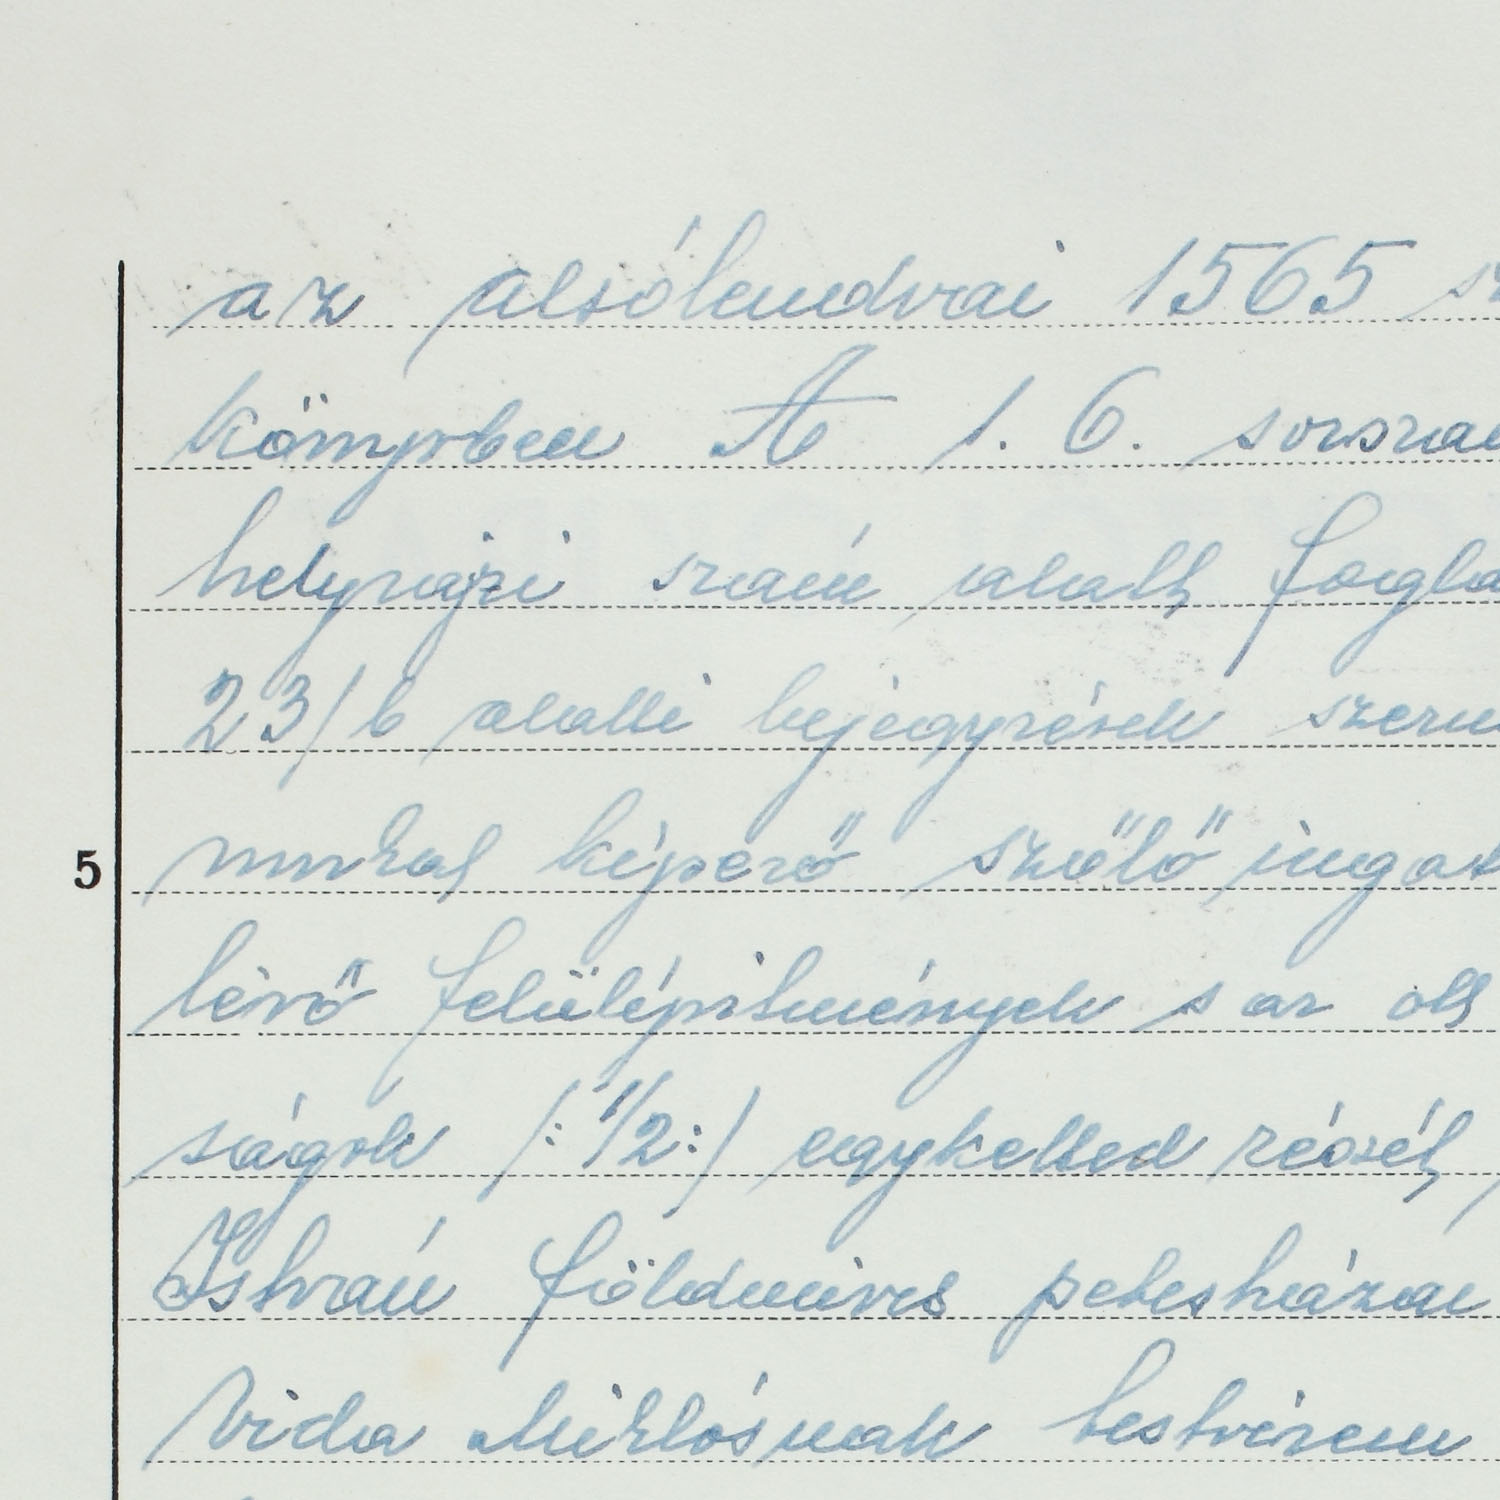 az alsólendvai 1565 sz
könyvben A I. 6. sorszám
helyrajzi szám alatt fogla
23/b alatti bejegyzések szerin
munkat képező szőlő ingat
lévő felülépitmények s az ott
ságok /: 1/2 :/ egyketted részét
5
István földmüves petesházai
Vida Miklósnak testvérem